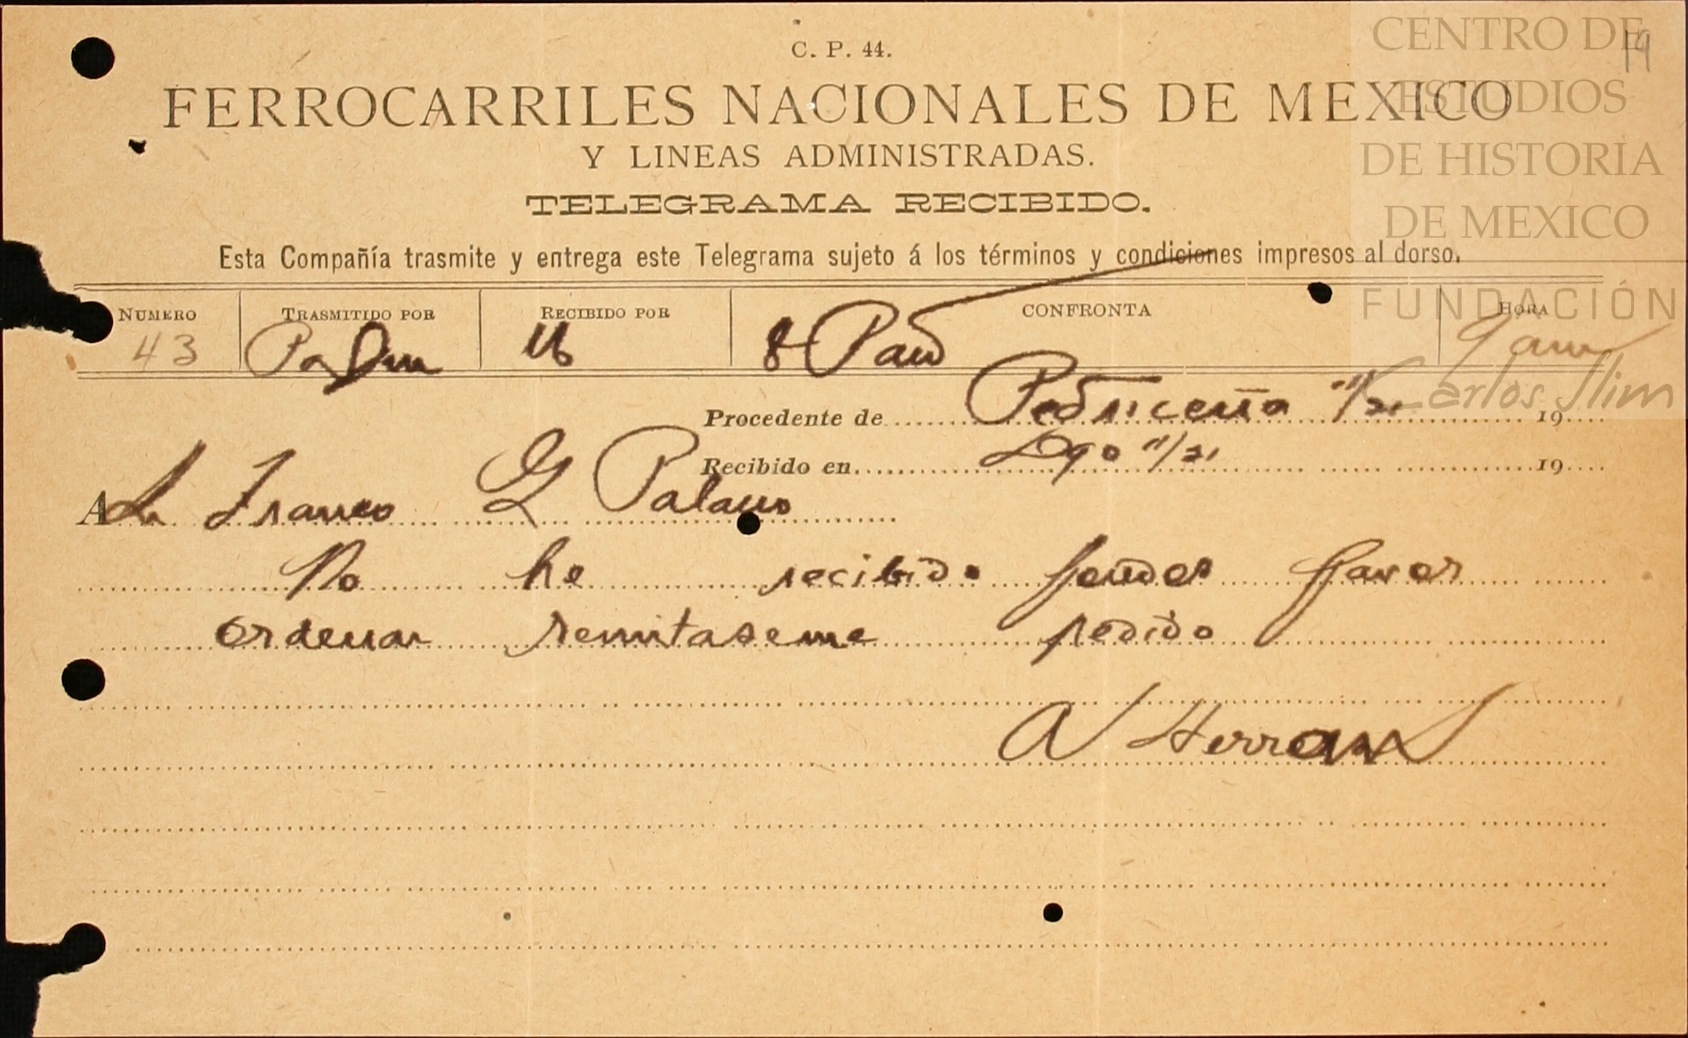 C. P. 44.
19
FERROCARRILES NACIONALES DE MEXICO
Y LINEAS ADMINISTRADAS.
TELEGRAMA RECIBIDO.
Esta Compañía trasmite y entrega este Telegrama sujeto á los términos y condiciones impresos al dorso.
NUMERO TRASMITIDO POR RECIBIDO POR CONFRONTA HORA
43 8 Paid 9 am
Procedente de Pedriceña 11/21 19
Recibido en Dgo 11/21 19
A Franco G Palacio
No he recibido fondos favor
ordenar remitaseme pedido
A Herran
CENTRO DE
ESTUDIOS
DE HISTORIA
DE MEXICO
FUNDACIÓN
Carlos Slim